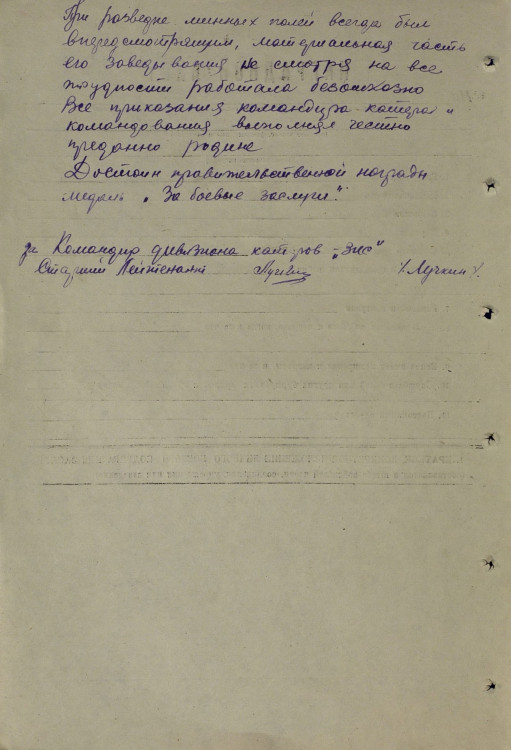 При разведке минных полей всегда был
впередсмотрящим, материальная часть
его заведывания не смотря на все
трудности работала безотказно
Все приказания командира катера и
командования выполнял честно
преданно родине
Достоин правительственной награды
медаль „За боевые заслуги".
Командир дивизиона катеров „ЗИС"
Старший Лейтенант /Лучкин/.